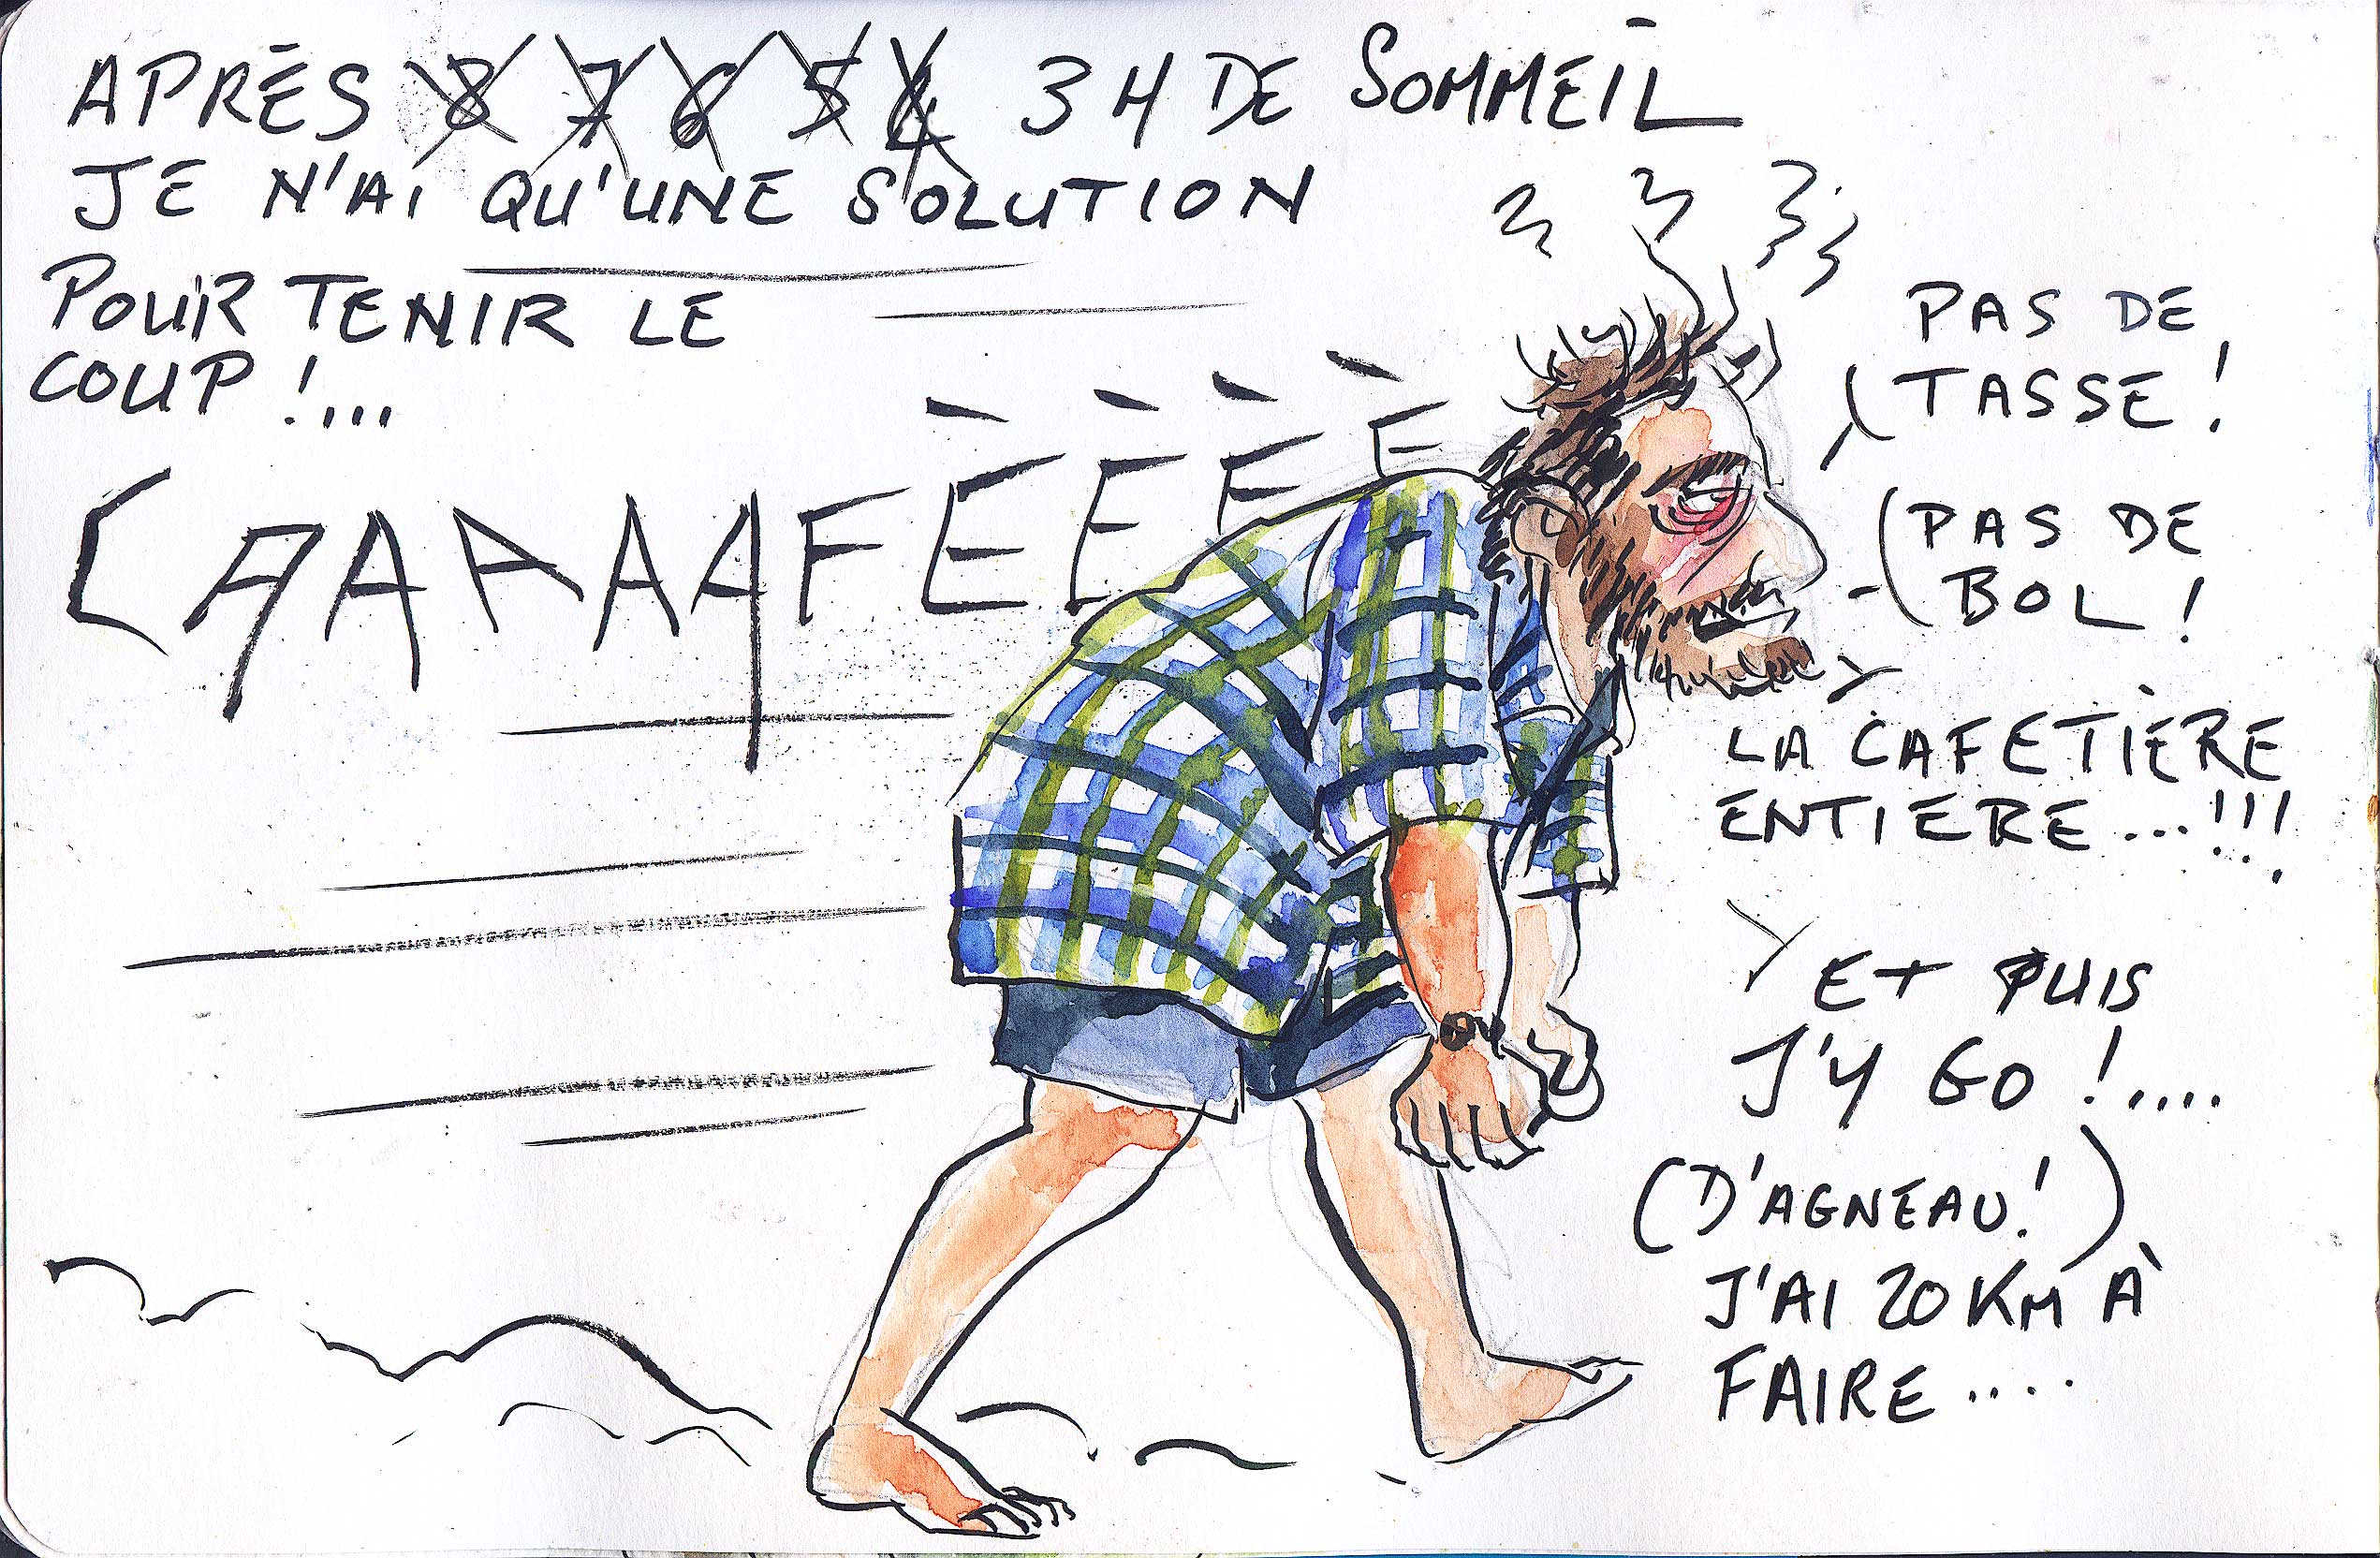 APRÈS 8 7 6 5 4 3 H DE SOMMEIL
JE N'AI QU'UNE SOLUTION
POUR TENIR LE
COUP !...
CAAAAAFÈÈÈÈ
PAS DE
TASSE !
PAS DE
BOL !
LA CAFETIÈRE
ENTIERE...!!!
ET PUIS
J'Y GO !....
(D'AGNEAU!)
J'AI 20 KM À
FAIRE....